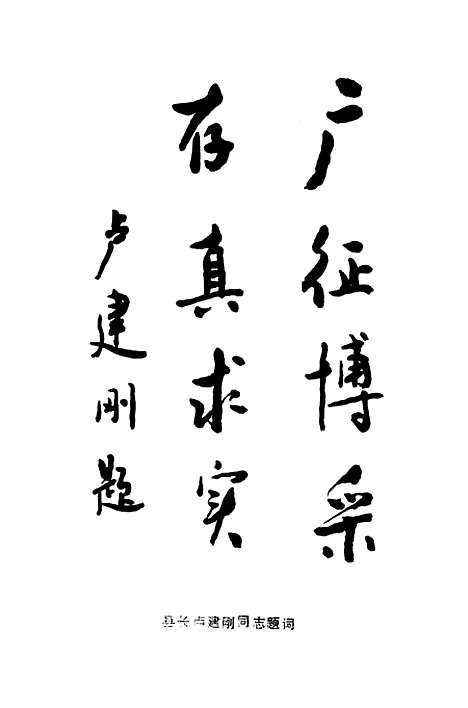 广征博采
存真求实
卢建刚题
县长卢建刚同志题词